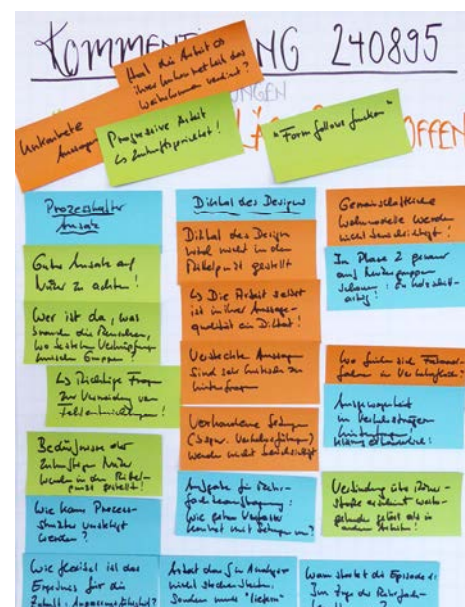 KOMMENTIERUNG 240895
Hat die Arbeit
ihrer Unkonkretheit das
Weiterkommen verdient?
Unkonkrete
Aussagen
Progressive Arbeit
↳ Zukunftsgerichtet!
"Form follows function"
OFFEN
Prozesshafter
Ansatz
Guter Ansatz auf
Nutzer zu achten!
Wer ist da, was
brauchen die Menschen,
wo bestehen Verknüpfungen
zwischen Gruppen?
↳ Richtige Fragen
zur Vermeidung von
Fehlentwicklungen!
Bedürfnisse der
zukünftigen Nutzer
werden in den Mittel-
punkt gestellt!
Wie kann Prozess-
struktur umgesetzt
werden?
Wie flexibel ist das
Ergebnis für die
Diktat des Designs
Diktat des Design
wird nicht in den
Mittelpunkt gestellt
↳ Die Arbeit selbst
ist in ihrer Aussage-
qualität ein Diktat!
Versteckte Aussagen
sind sehr kritisch zu
hinterfragen
Vorhandene Setzungen
werden nicht berücksichtigt
Aufgabe für Mehr-
fachbeauftragung:
Wie gehen Verfasser
konkret mit Setzungen um?
Arbeit darf in Analyse
nicht steckenbleiben,
sondern muss "liefern"
Gemeinschaftliche
Wohnmodelle werden
nicht berücksichtigt!
In Phase 2 genauer
auf Nutzergruppen
schauen: zu holzschnitt-
artig!
Wo finden sich
Ausgewogenheit
in Verkehrsträgern
Verbindung über Römer-
straße erscheint weiter-
gehend gelöst als in
anderen Arbeiten!
Wann startet die Episode 1: